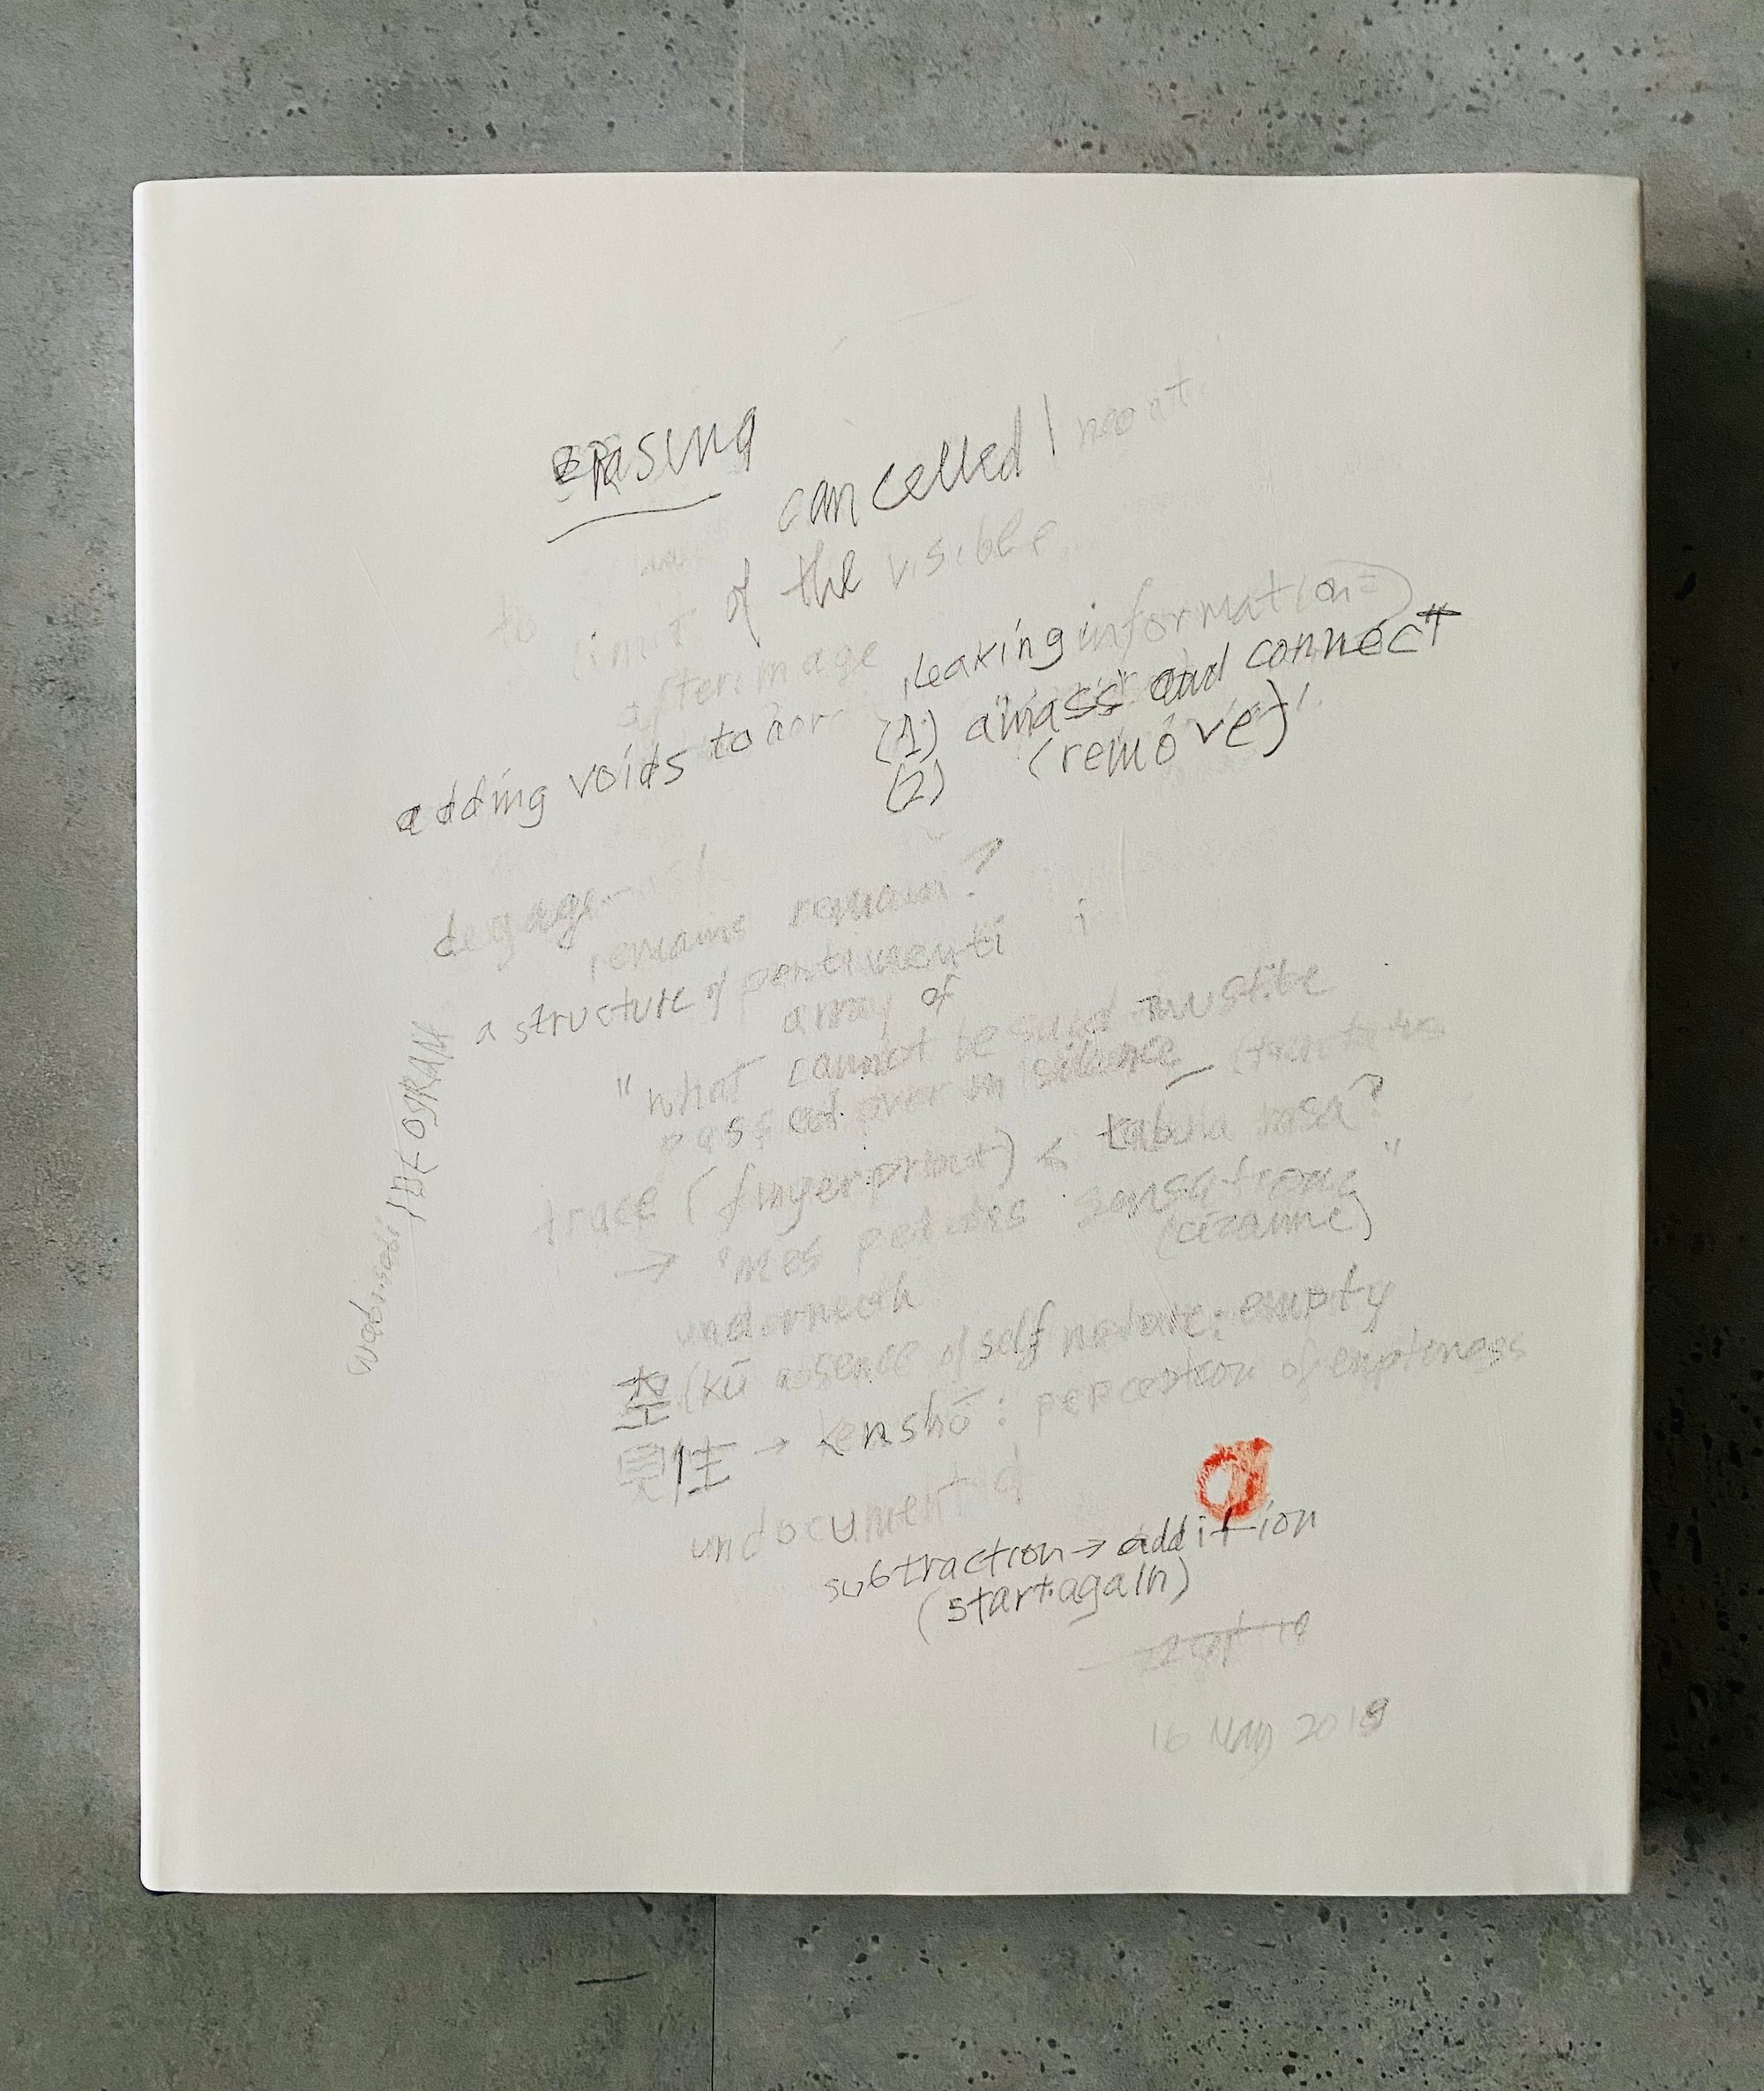 erasing
cancelled |
to limit of the visible
afterimage
leaking information =
adding voids to
(1) amass and connect
(2) (remove)
remains remain?
a structure of pentimenti
array of
"what cannot be said must be
passed over in silence
trace (fingerprint) < tabula rasa?
→ "mes petites sensations"
(cézanne)
underneath
空 (kū absence of self nature: empty
見性 → kenshō: perception of emptiness
undocumented
subtraction → addition
(start again)
16 May 2019
wabi-sabi / IDEOGRAM